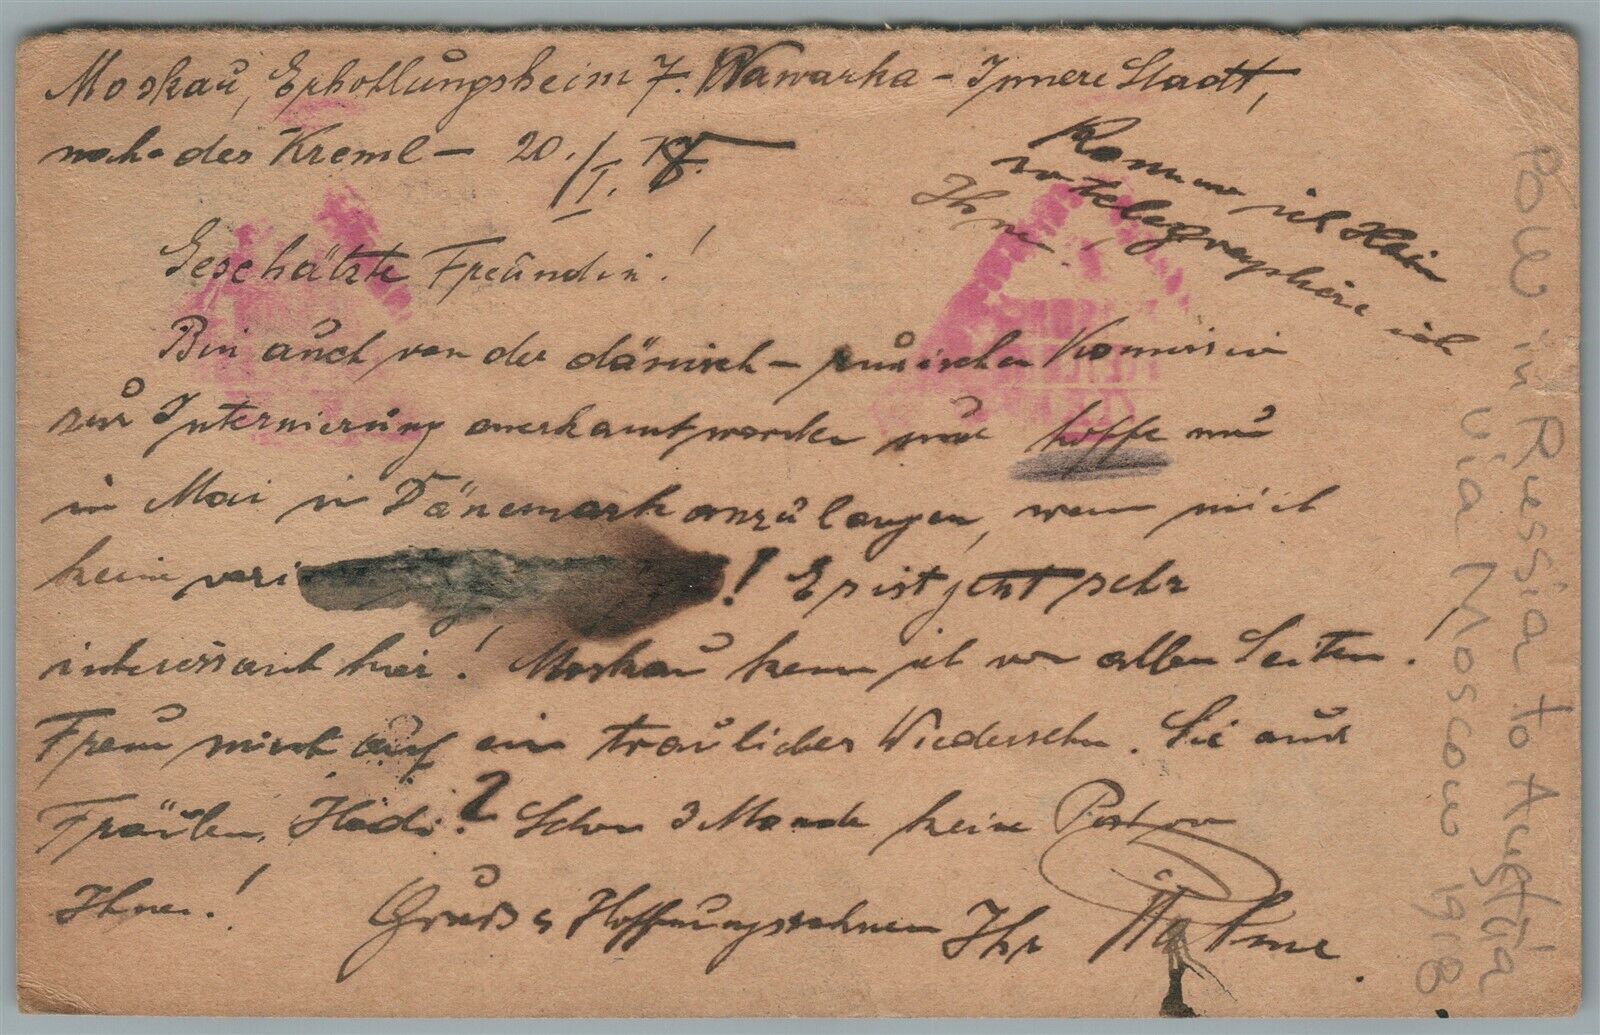 Moskau, Erhollungsheim 7. Wawarka - Innere Stadt,
nahe des Kreml - 20./I. 18.
Komme ich Heim
so telegraphiere ich
Ihnen!
Geschätzte Freundin!
Bin auch von der dänisch - russischen Komission
zur Internierung anerkannt worden und hoffe nun
im Mai in Dänemark anzulangen, wenn mich
keine veri !
Es ist jetzt sehr
interessant hier! Moskau kenn ich von allen Seiten!
Freue mich auf ein trauliches Wiedersehn. Sie und
Fräulein Hädi? Schon 3 Monate keine Post von
Ihnen!
Grüße Hoffnungssehnen Ihr
POW in Russia to Austria
via Moscow 1918